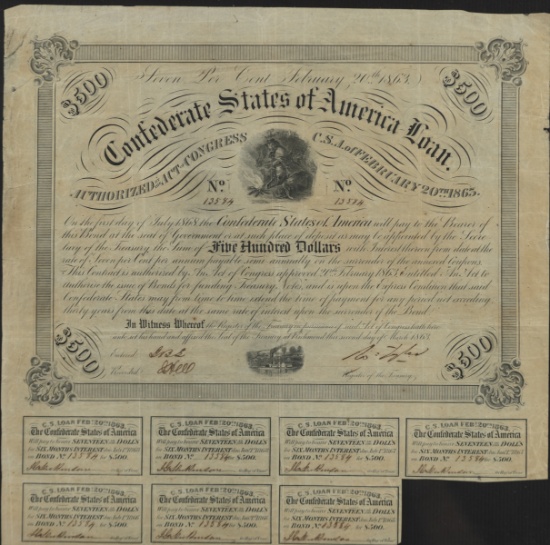 Seven Per Cent February 20th 1863
$500
$500
Confederate States of America Loan.
AUTHORIZED by ACT of CONGRESS C.S.A. of FEBRUARY 20TH 1863.
No No
13884 13884
On the first day of July 1868 the Confederate States of America will pay to the Bearer of
this Bond at the seat of Government or at such place of deposit as may be appointed by the Secre-
tary of the Treasury the Sum of Five Hundred Dollars with Interest thereon from date at the
rate of Seven per Cent per annum payable semi annually on the surrender of the annexed Coupons.
This Contract is authorized by An Act of Congress approved 20th February 1863 entitled An Act to
authorize the issue of Bonds for funding Treasury Notes, and is upon the Express Condition that said
Confederate States may from time to time extend the time of payment for any period not exceeding
thirty years from this date at the same rate of interest upon the surrender of the Bond.
In Witness Whereof the Register of the Treasury in pursuance of said Act of Congress hath here-
unto set his hand and affixed the Seal of the Treasury at Richmond this second day of March 1863.
Entered
Recorded
Ro. Tyler
Register of the Treasury
$500
$500
C. S. LOAN FEBY 20TH 1863.
The Confederate States of America
Will pay to bearer SEVENTEEN 50 DOLLS
for SIX MONTHS INTEREST due
on BOND No 13884 for $500.
C. S. LOAN FEBY 20TH 1863.
The Confederate States of America
Will pay to bearer SEVENTEEN 50 DOLLS
for SIX MONTHS INTEREST due
on BOND No 13884 for $500.
C. S. LOAN FEBY 20TH 1863.
The Confederate States of America
Will pay to bearer SEVENTEEN 50 DOLLS
for SIX MONTHS INTEREST due
on BOND No 13884 for $500.
C. S. LOAN FEBY 20TH 1863.
The Confederate States of America
Will pay to bearer SEVENTEEN 50 DOLLS
for SIX MONTHS INTEREST due
on BOND No 13884 for $500.
C. S. LOAN FEBY 20TH 1863.
The Confederate States of America
Will pay to bearer SEVENTEEN 50 DOLLS
for SIX MONTHS INTEREST due
on BOND No 13884 for $500.
C. S. LOAN FEBY 20TH 1863.
The Confederate States of America
Will pay to bearer SEVENTEEN 50 DOLLS
for SIX MONTHS INTEREST due
on BOND No 13884 for $500.
C. S. LOAN FEBY 20TH 1863.
The Confederate States of America
Will pay to bearer SEVENTEEN 50 DOLLS
for SIX MONTHS INTEREST due
on BOND No 13884 for $500.